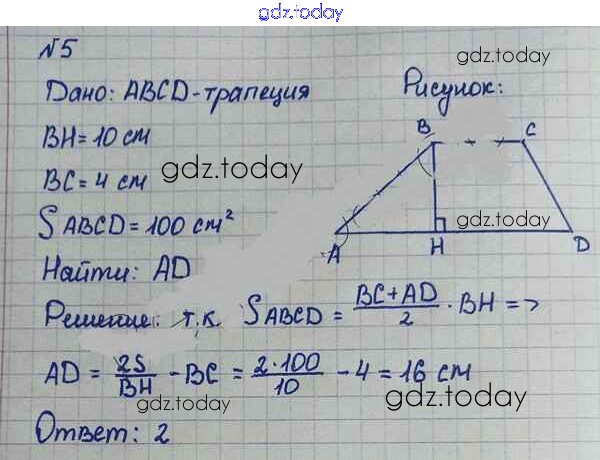 gdz.today
№5
gdz.today
Дано: ABCD-трапеция
Рисунок:
BH = 10 см
B C
gdz.today
BC = 4 см
S ABCD = 100 см²
gdz.today
A H D
Найти: AD
Решение: т.к. S ABCD = BC+AD/2 · BH =>
AD = 2S/BH - BC = 2·100/10 - 4 = 16 см
gdz.today
gdz.today
Ответ: 2